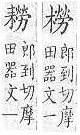 橯郎到切摩田器文一
耮郎到切摩田器文一